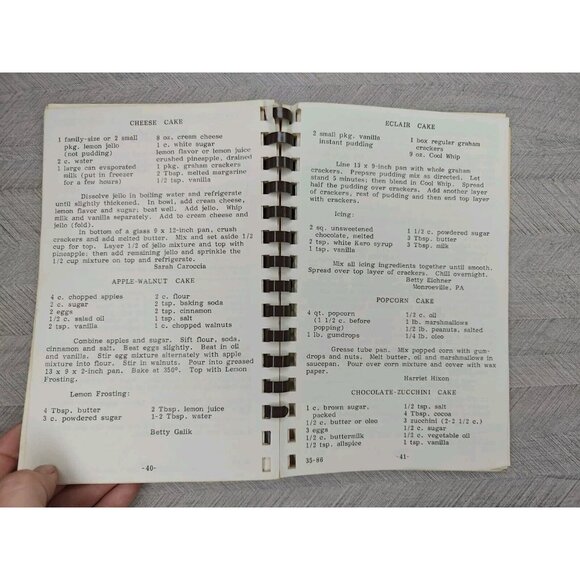 CHEESE CAKE
1 family-size or 2 small
pkg. lemon jello
(not pudding)
2 c. water
1 large can evaporated
milk (put in freezer
for a few hours)
8 oz. cream cheese
1 c. white sugar
lemon flavor or lemon juice
crushed pineapple, drained
1 pkg. graham crackers
2 Tbsp. melted margarine
1/2 tsp. vanilla
Dissolve jello in boiling water and refrigerate
until slightly thickened. In bowl, add cream cheese,
lemon flavor and sugar; beat well. Add jello. Whip
milk and vanilla separately. Add to cream cheese and
jello (fold).
In bottom of a glass 9 x 12-inch pan, crush
crackers and add melted butter. Mix and set aside 1/2
cup for top. Layer 1/2 of jello mixture and top with
pineapple; then add remaining jello and sprinkle the
1/2 cup mixture on top and refrigerate.
Sarah Caroccia
APPLE-WALNUT CAKE
4 c. chopped apples
2 c. sugar
2 eggs
1/2 c. salad oil
2 tsp. vanilla
2 c. flour
2 tsp. baking soda
2 tsp. cinnamon
1 tsp. salt
1 c. chopped walnuts
Combine apples and sugar. Sift flour, soda,
cinnamon and salt. Beat eggs slightly. Beat in oil
and vanilla. Stir egg mixture alternately with apple
mixture into flour. Stir in walnuts. Pour into greased
13 x 9 x 2-inch pan. Bake at 350°. Top with Lemon
Frosting.
Lemon Frosting:
4 Tbsp. butter
3 c. powdered sugar
2 Tbsp. lemon juice
1-2 Tbsp. water
Betty Galik
-40-
ECLAIR CAKE
2 small pkg. vanilla
instant pudding
1 box regular graham
crackers
9 oz. Cool Whip
Line 13 x 9-inch pan with whole graham
crackers. Prepare pudding mix as directed. Let
stand 5 minutes; then blend in Cool Whip. Spread
half the pudding over crackers. Add another layer
of crackers, rest of pudding and then end top layer
with crackers.
Icing:
2 sq. unsweetened
chocolate, melted
2 tsp. white Karo syrup
1 tsp. vanilla
1 1/2 c. powdered sugar
3 Tbsp. butter
3 Tbsp. milk
Mix all icing ingredients together until smooth.
Spread over top layer of crackers. Chill overnight.
Betty Eichner
Monroeville, PA
POPCORN CAKE
4 qt. popcorn
(1 1/2 c. before
popping)
1 lb. gumdrops
1/2 c. oil
1 lb. marshmallows
1/2 lb. peanuts, salted
1/4 lb. oleo
Grease tube pan. Mix popped corn with gum-
drops and nuts. Melt butter, oil and marshmallows in
saucepan. Pour over corn mixture and cover with wax
paper.
Harriet Hixon
CHOCOLATE-ZUCCHINI CAKE
1 c. brown sugar,
packed
1/2 c. butter or oleo
3 eggs
1/2 c. buttermilk
1/2 tsp. allspice
1/2 tsp. salt
4 Tbsp. cocoa
3 zucchini (2-2 1/2 c.)
1/2 c. sugar
1/2 c. vegetable oil
1 tsp. vanilla
35-86
-41-